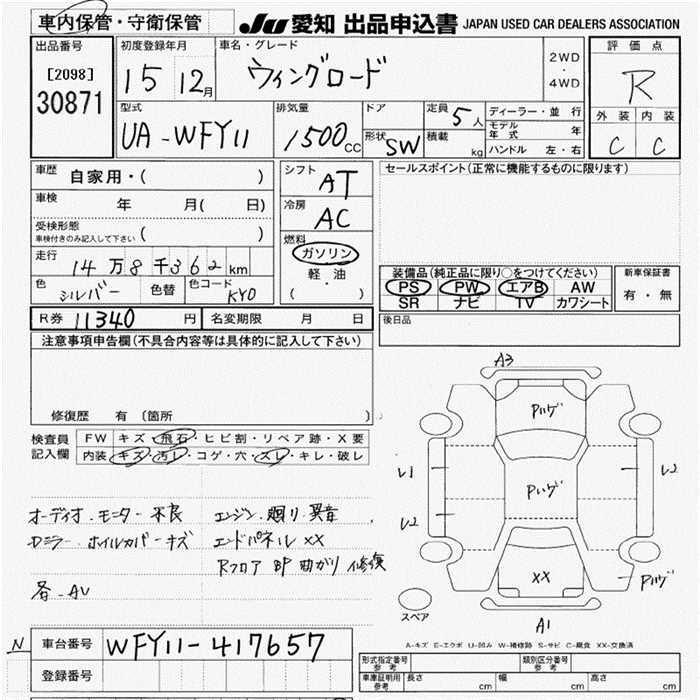 車内保管・守衛保管
JU 愛知 出品申込書 JAPAN USED CAR DEALERS ASSOCIATION
出品番号
[2098]
30871
初度登録年月
15 12月
車名・グレード
ウィングロード
2WD
・
4WD
評価点
R
外装 内装
C C
型式
UA-WFY11
排気量
1500cc
ドア
形状 SW
定員 5人
積載 kg
ディーラー・並行
モデル年式 年
ハンドル 左・右
車歴 自家用・( )
車検 年 月( 日)
受検形態
車検付きのみ記入して下さい ( )
走行 14万8千362km
色 シルバー 色替 色コード KY0
シフト AT
冷房 AC
燃料
ガソリン
軽油
( )
セールスポイント(正常に機能するものに限ります)
装備品(純正品に限り○をつけてください)
PS PW エアB AW
SR ナビ TV カワシート
新車保証書
有・無
R券 11340円 名変期限 月 日
後日品
注意事項申告欄(不具合内容等は具体的に記入して下さい)
修復歴 有 〔箇所 〕
検査員
記入欄
FW キズ・飛石・ヒビ割・リペア跡・X要
内装 キズ・汚レ・コゲ・穴・スレ・キレ・破レ
オーディオ.モニター不良
エンジン.廻り.異音
ホイルカバーキズ
エンドパネルXX
Rフロア 曲がり 修復
各-AU
A3
Pハゲ
L1
L2
Pハゲ
L2
XX
Pハゲ
スペア
A1
A-キズ E-エクボ U-凹み W-補修跡 S-サビ C-腐食 XX-交換済
N 車台番号 WFY11-417657
登録番号
型式指定番号
参考
類別区分番号
参考
車庫証明用
参考
長さ cm 幅 cm 高さ cm